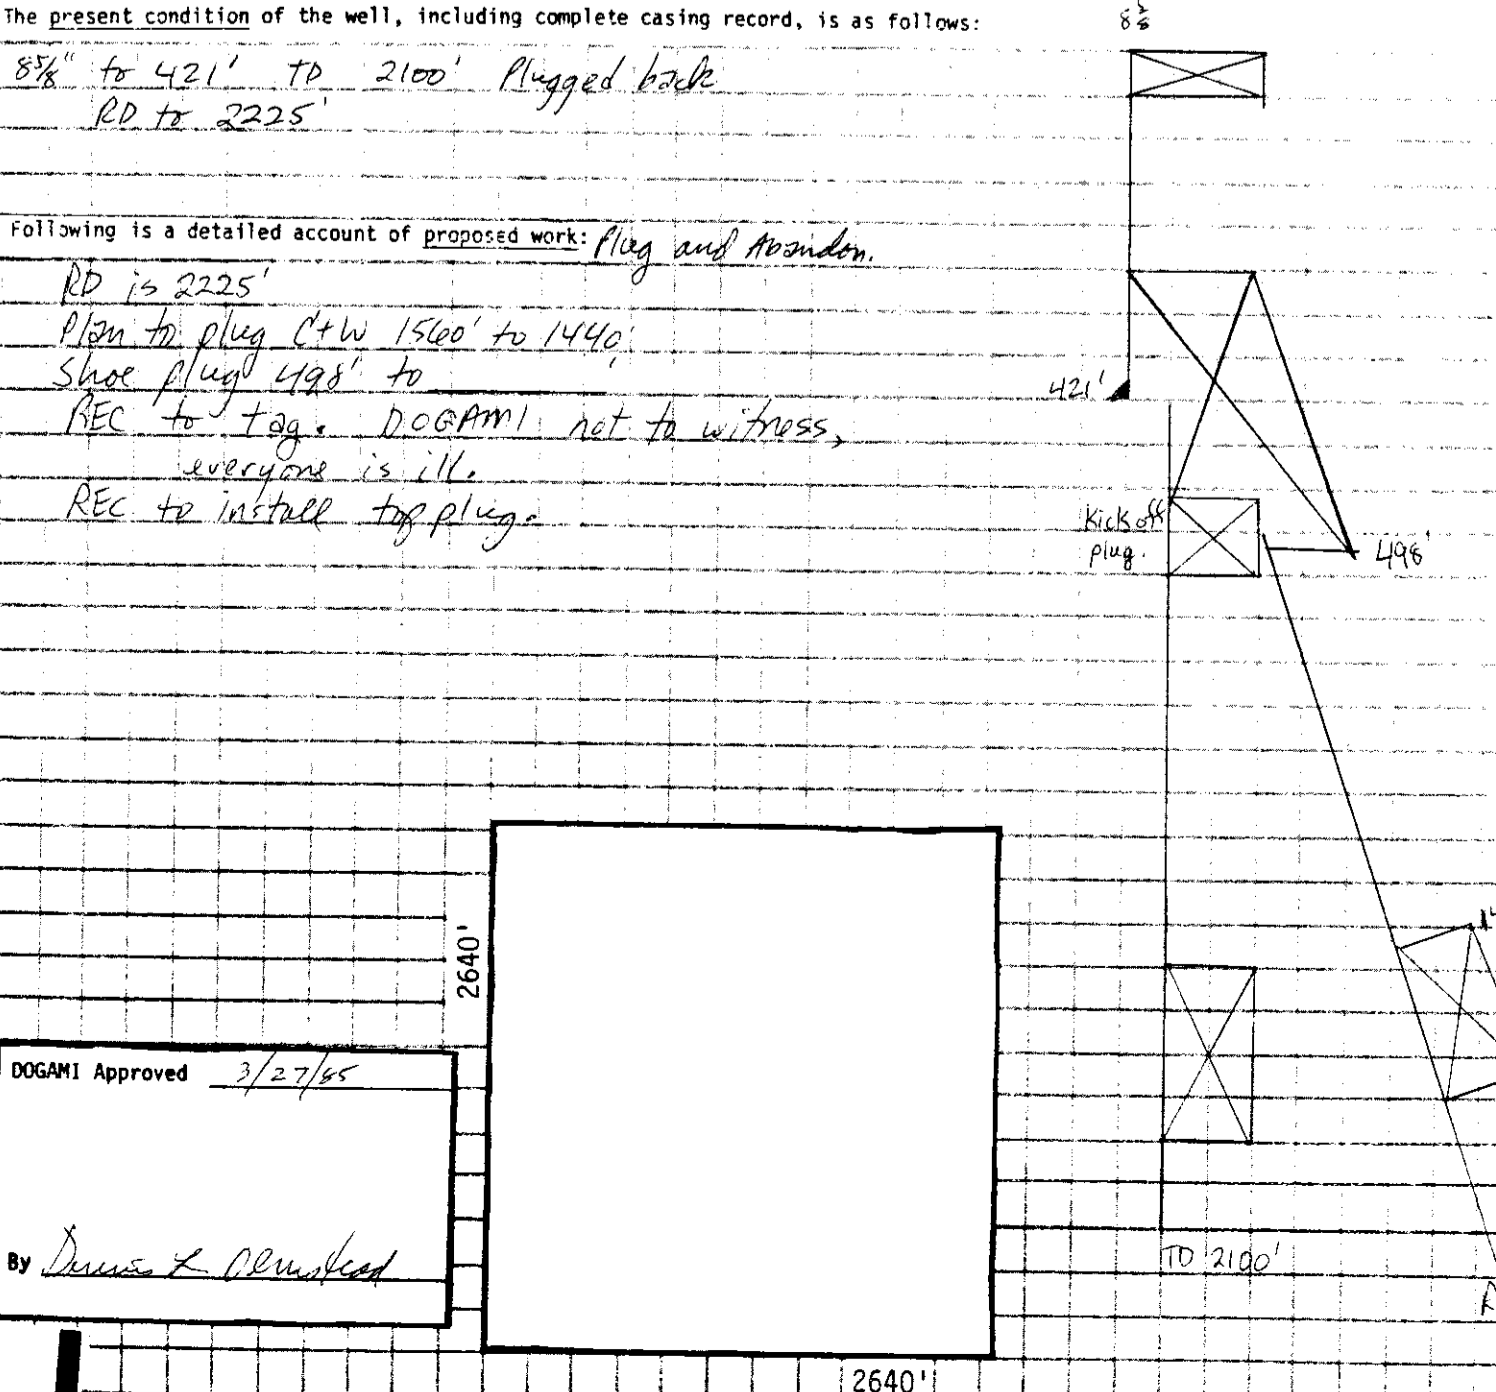 The present condition of the well, including complete casing record, is as follows:
8 5/8" to 421' TD 2100' Plugged back
RD to 2225'
Following is a detailed account of proposed work: Plug and Abandon.
RD is 2225'
Plan to plug C+W 1560' to 1440'
Shoe plug 498' to ________'
REC to tag. DOGAMI not to witness,
everyone is ill.
REC to install top plug.
8 5/8
421'
Kick off
plug.
498'
TD 2100'
2640'
2640'
DOGAMI Approved 3/27/85
By Dennis L Olmstead